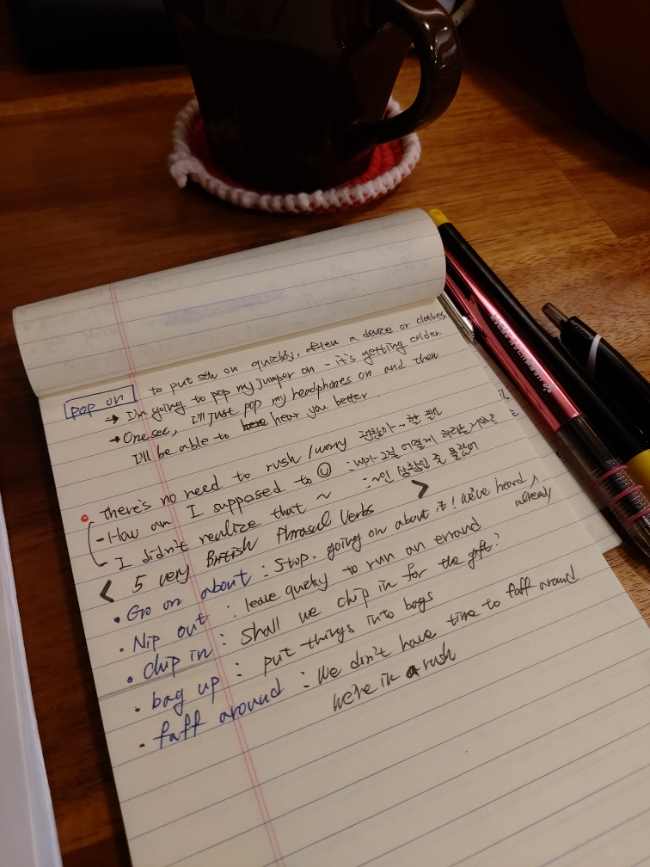 pop on to put sth on quickly, often a device or clothes
→ I'm going to pop my jumper on - it's getting colder
→ One sec, I'll just pop my headphones on and then
I'll be able to hear you better.
• there's no need to rush/worry 괜찮아~ 할 필요
- How am I supposed to ⓥ : 내가 그걸 어떻게 하라는 거야?
- I didn't realize that ~ : ~인 상황인 줄 몰랐어
< 5 very British Phrasal Verbs >
• Go on about : Stop. going on about it! we've heard
already
• Nip out : leave quicky to run an errand
• chip in : Shall we chip in for the gift?
• bag up : put things into bags
• faff around : We din't have time to faff around
We're in a rush